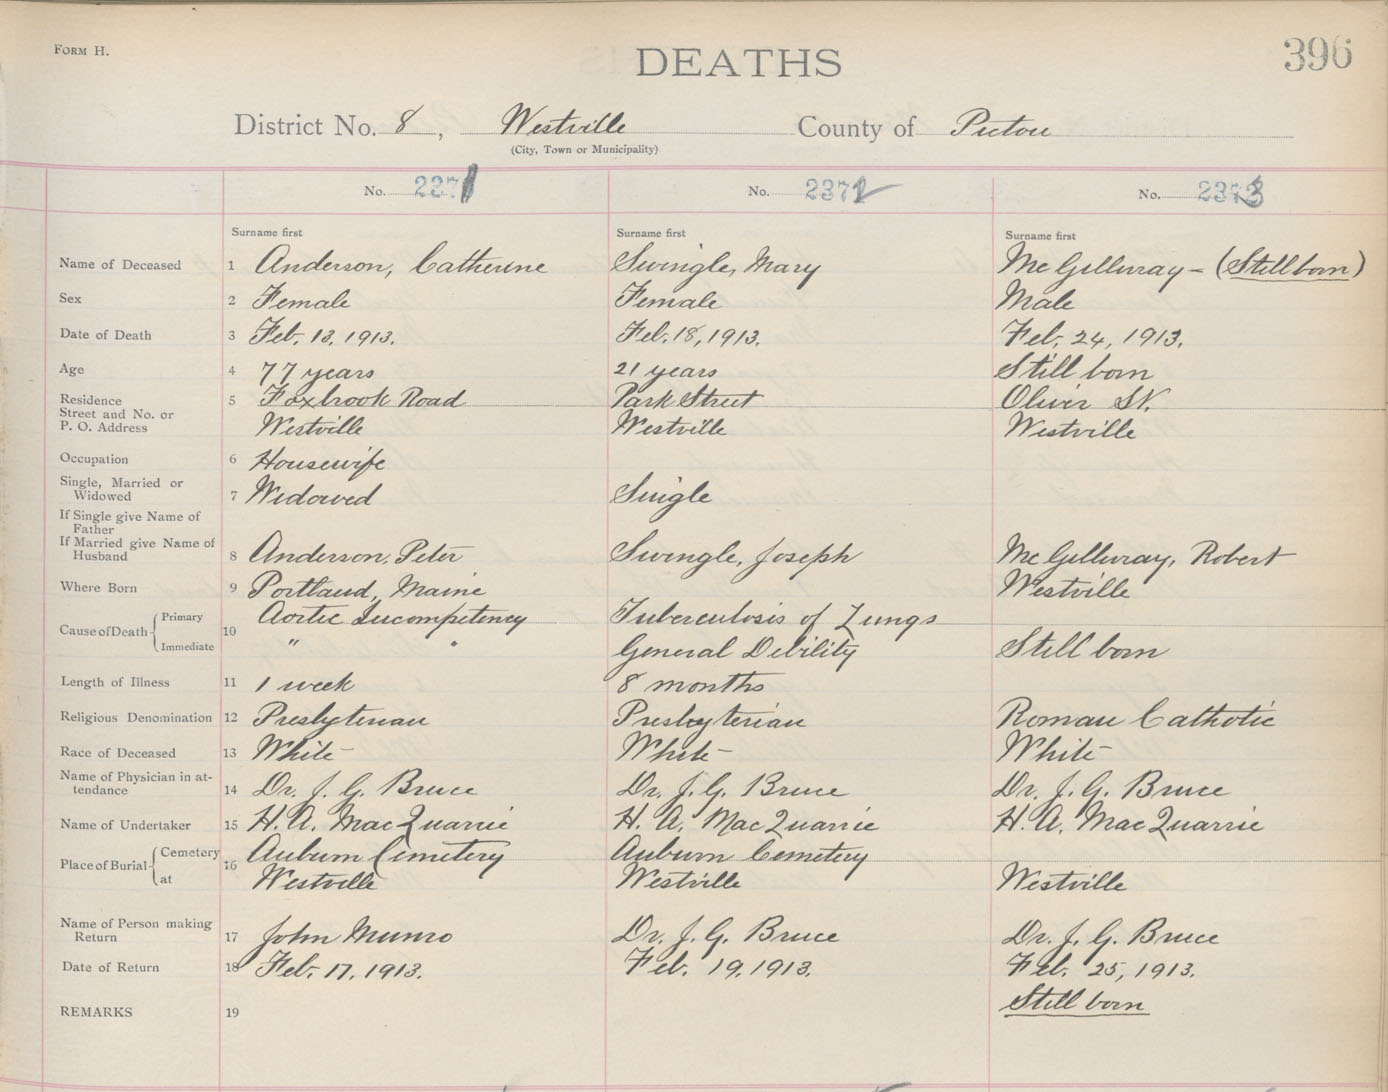 FORM H.
DEATHS
396
District No. 8, Westville County of Pictou
(City, Town or Municipality)
No. 2371 No. 2372 No. 2373
Surname first Surname first Surname first
Name of Deceased 1 Anderson, Catherine Swingle, Mary McGillivray - (Stillborn)
Sex 2 Female Female Male
Date of Death 3 Feb. 13, 1913. Feb. 18, 1913. Feb. 24, 1913.
Age 4 77 years 21 years Still born
Residence 5 Foxbrook Road Park Street Oliver St.
Street and No. or
P. O. Address Westville Westville Westville
Occupation 6 Housewife
Single, Married or
Widowed 7 Widowed Single
If Single give Name of
Father
If Married give Name of
Husband 8 Anderson, Peter Swingle, Joseph McGillivray, Robert
Where Born 9 Portland, Maine Westville
Cause of Death Primary 10 Aortic Incompetency Tuberculosis of Lungs
Immediate " " General Debility Still born
Length of Illness 11 1 week 8 months
Religious Denomination 12 Presbyterian Presbyterian Roman Catholic
Race of Deceased 13 White White White
Name of Physician in at-
tendance 14 Dr. J. G. Bruce Dr. J. G. Bruce Dr. J. G. Bruce
Name of Undertaker 15 H. A. MacQuarrie H. A. MacQuarrie H. A. MacQuarrie
Place of Burial Cemetery 16 Auburn Cemetery Auburn Cemetery
at Westville Westville Westville
Name of Person making
Return 17 John Munro Dr. J. G. Bruce Dr. J. G. Bruce
Date of Return 18 Feb. 17, 1913. Feb. 19, 1913. Feb. 25, 1913.
REMARKS 19 Still born